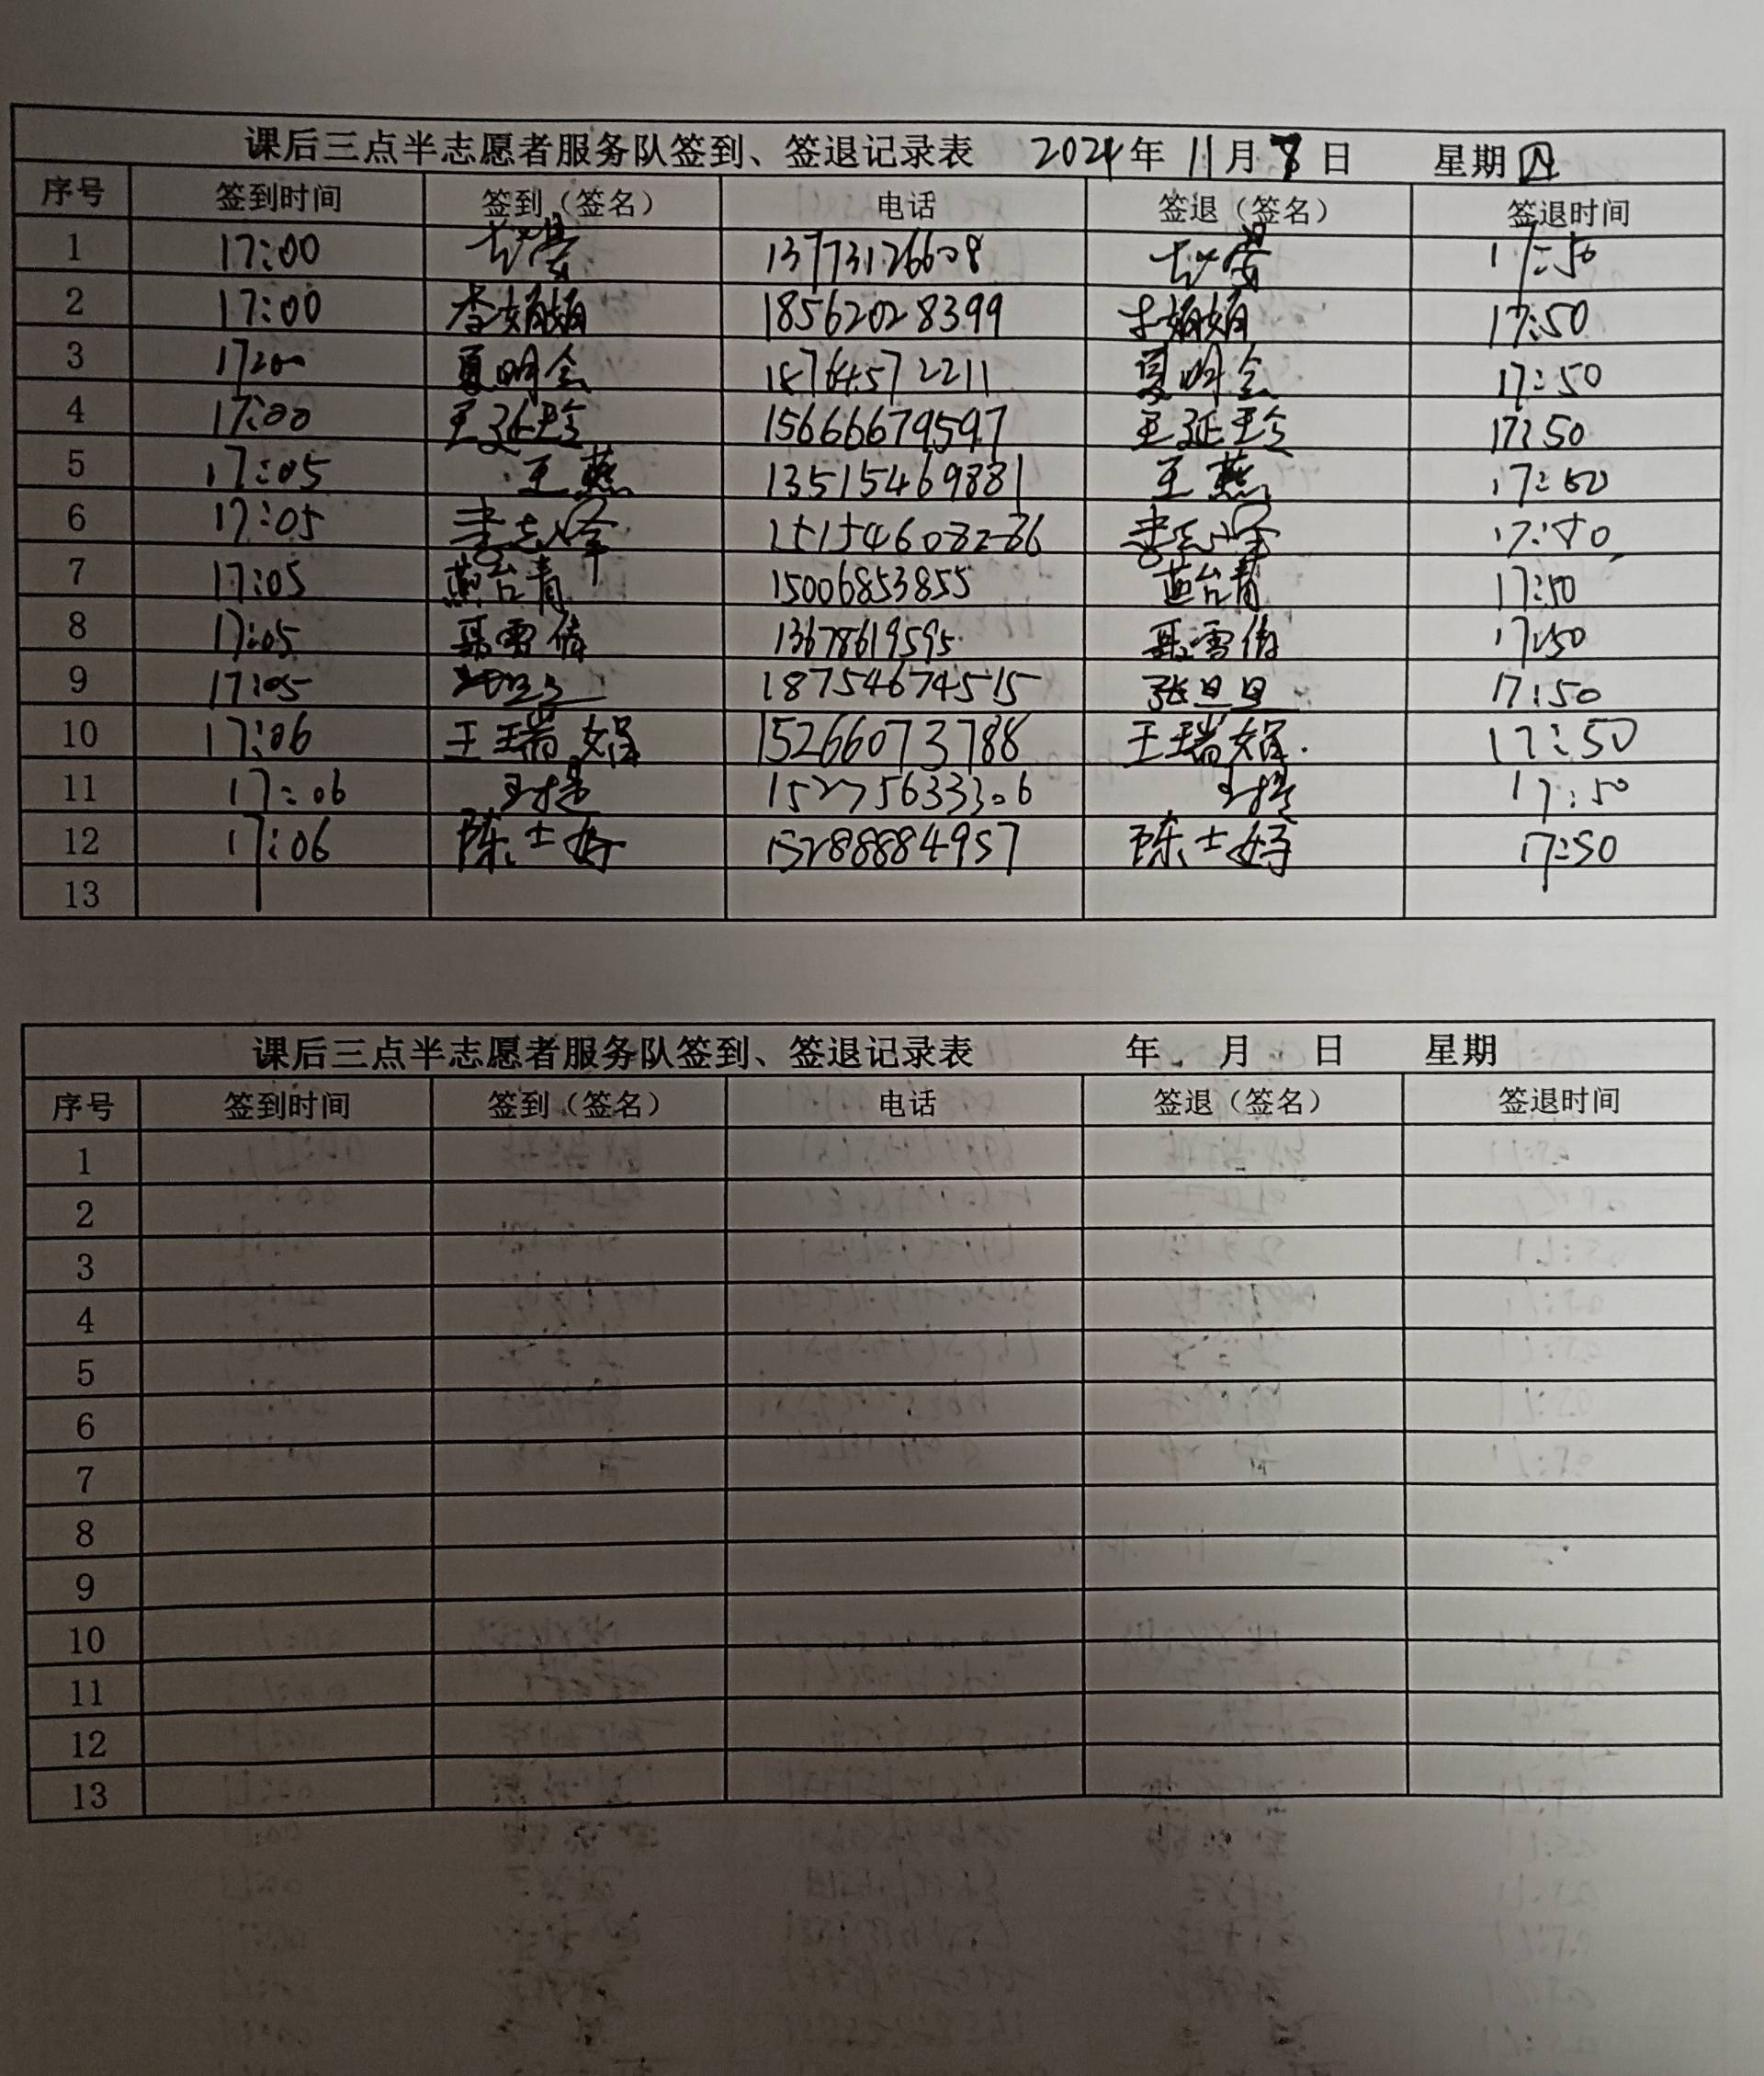 课后三点半志愿者服务队签到、签退记录表 2024年 11月 7日 星期四
序号 签到时间 签到（签名） 电话 签退（签名） 签退时间
1 17:00 13773126608 17:50
2 17:00 李娟娟 18562028399 李娟娟 17:50
3 17:00 夏明会 18764572211 夏明会 17:50
4 17:00 王延玲 15666679597 王延玲 17:50
5 17:05 王燕 13515469881 王燕 17:50
6 17:05 17:50
7 17:05 燕台青 15006853855 燕台青 17:50
8 17:05 聂雪倩 13678619595 聂雪倩 17:50
9 17:05 18754674515 张旦旦 17:50
10 17:06 王瑞娟 15266073788 王瑞娟 17:50
11 17:06 15275633306 17:50
12 17:06 陈士好 15288884957 陈士好 17:50
13
课后三点半志愿者服务队签到、签退记录表 年 月 日 星期
序号 签到时间 签到（签名） 电话 签退（签名） 签退时间
1
2
3
4
5
6
7
8
9
10
11
12
13